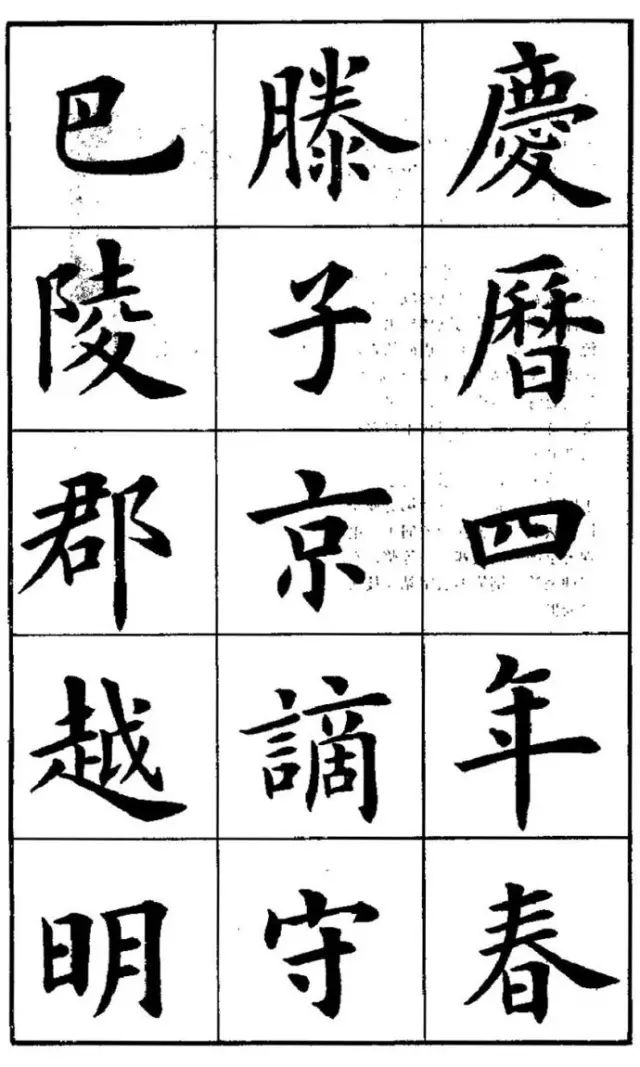 慶曆四年春
滕子京謫守
巴陵郡越明